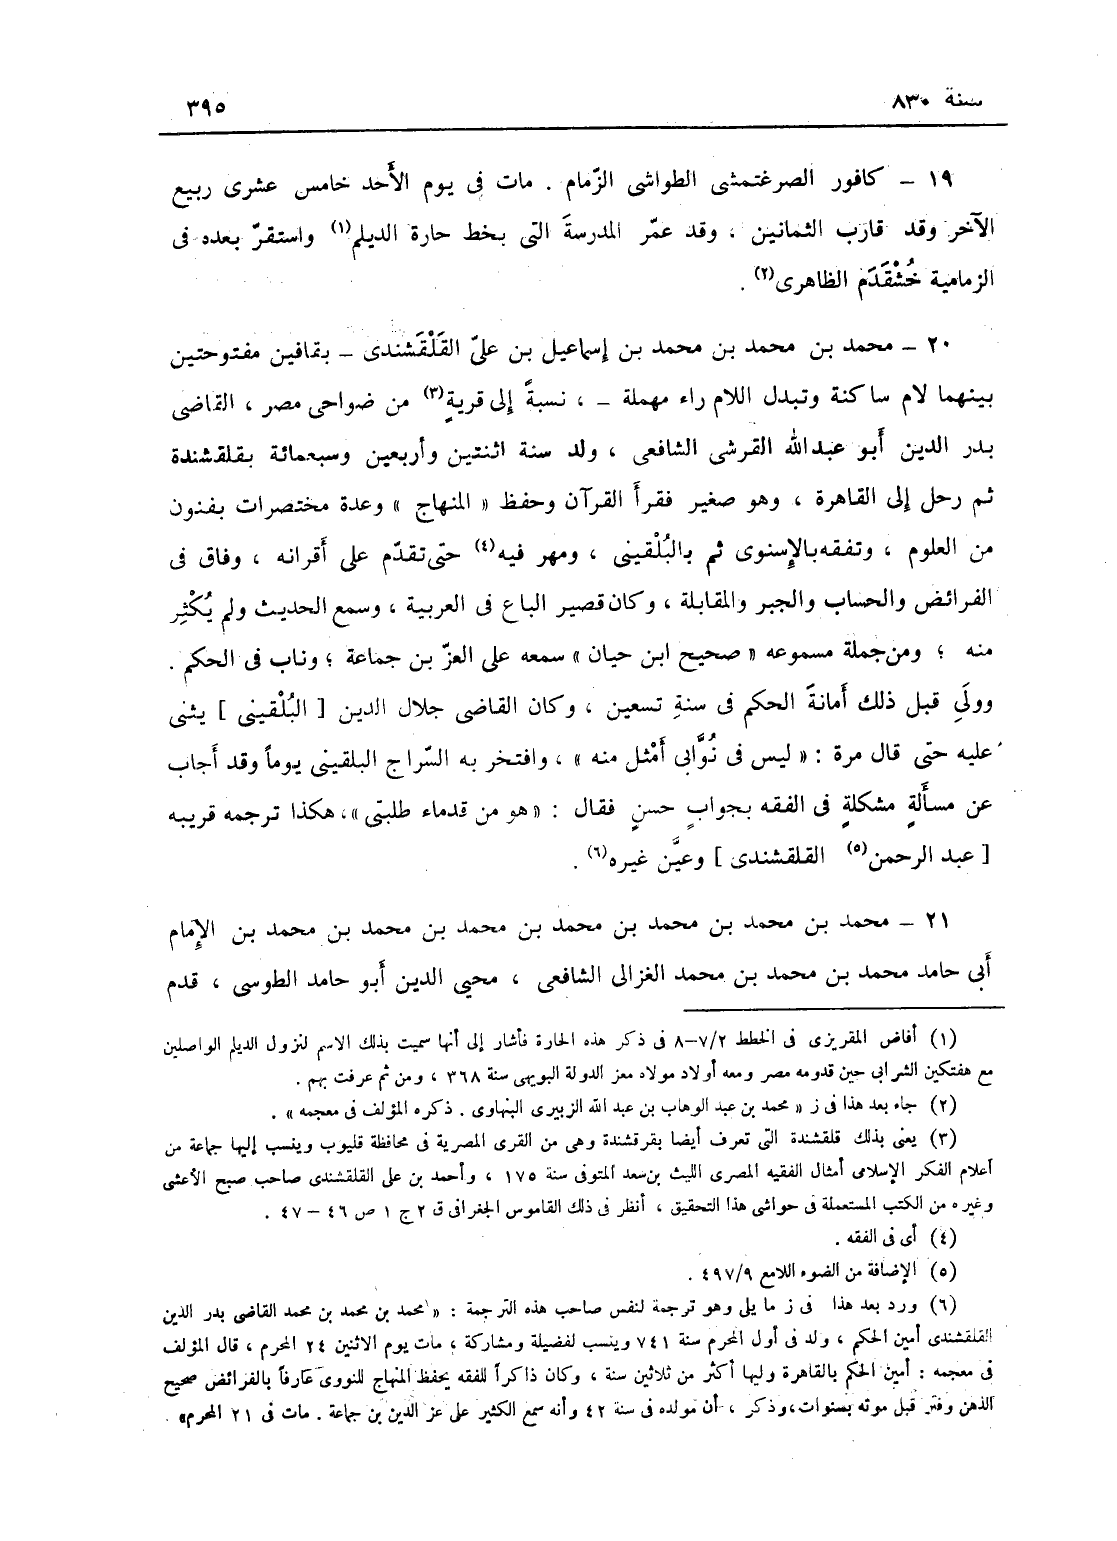 سنة ٨٣٠
٣٩٥
١٩ – كافور الصرغتمشى الطواشى الزّمام . مات فى يوم الأَحد خامس عشرى ربيع
الآخر وقد قارب الثمانين ، وقد عمّر المدرسةَ التى بخط حارة الديلم(١) واستقرّ بعده فى
الزمامية خُشْقَدَم الظاهرى(٢) .
٢٠ – محمد بن محمد بن محمد بن إسماعيل بن علىّ القَلْقَشندى – بقافين مفتوحتين
بينهما لام ساكنة وتبدل اللام راء مهملة – ، نسبةً إلى قريةٍ(٣) من ضواحى مصر ، القاضى
بدر الدين أَبو عبدالله القرشى الشافعى ، ولد سنة اثنتين وأربعين وسبعمائة بقلقشندة
ثم رحل إلى القاهرة ، وهو صغير فقرأَ القرآن وحفظ « المنهاج » وعدة مختصرات بفنون
من العلوم ، وتفقه بالإِسنوى ثم بالبُلْقينى ، ومهر فيه(٤) حتى تقدّم على أَقرانه ، وفاق فى
الفرائض والحساب والجبر والمقابلة ، وكان قصير الباع فى العربية ، وسمع الحديث ولم يُكْثِر
منه ؛ ومن جملة مسموعه « صحيح ابن حيان » سمعه على العزّ بن جماعة ؛ وناب فى الحكم .
وولَى قبل ذلك أَمانةَ الحكم فى سنةِ تسعين ، وكان القاضى جلال الدين [ البُلْقينى ] يثنى
عليه حتى قال مرة : « ليس فى نُوَّابى أَمْثل منه » ، وافتخر به السّراج البلقينى يوماً وقد أَجاب
عن مسأَلةٍ مشكلةٍ فى الفقه بجوابٍ حسنٍ فقال : « هو من قدماء طلبتى » ، هكذا ترجمه قريبه
[ عبد الرحمن(٥) القلقشندى ] وعيَّن غيره(٦) .
٢١ – محمد بن محمد بن محمد بن محمد بن محمد بن محمد بن محمد بن الإِمام
أَبى حامد محمد بن محمد بن محمد الغزالى الشافعى ، محيى الدين أَبو حامد الطوسى ، قدم
(١) أفاض المقريزى فى الخطط ٢/٧–٨ فى ذكر هذه الحارة فأشار إلى أنها سميت بذلك الاسم لنزول الديلم الواصلين
مع هفتكين الشرابى حين قدومه مصر ومعه أولاد مولاه معز الدولة البويهى سنة ٣٦٨ ، ومن ثم عرفت بهم .
(٢) جاء بعد هذا فى ز « محمد بن عبد الوهاب بن عبد الله الزبيرى البنهاوى . ذكره المؤلف فى معجمه » .
(٣) يعنى بذلك قلقشندة التى تعرف أيضا بقرقشندة وهى من القرى المصرية فى محافظة قليوب وينسب إليها جماعة من
أعلام الفكر الإسلامى أمثال الفقيه المصرى الليث بن سعد المتوفى سنة ١٧٥ ، وأحمد بن على القلقشندى صاحب صبح الأعشى
وغيره من الكتب المستعملة فى حواشى هذا التحقيق ، أنظر فى ذلك القاموس الجغرافى ق ٢ ج ١ ص ٤٦ – ٤٧ .
(٤) أى فى الفقه .
(٥) الإضافة من الضوء اللامع ٩/٤٩٧ .
(٦) ورد بعد هذا فى ز ما يلى وهو ترجمة لنفس صاحب هذه الترجمة : « محمد بن محمد بن محمد القاضى بدر الدين
القلقشندى أمين الحكم ، ولد فى أول المحرم سنة ٧٤١ وينسب لفضيلة ومشاركة ؛ مات يوم الاثنين ٢٤ المحرم ، قال المؤلف
فى معجمه : أمين الحكم بالقاهرة وليها أكثر من ثلاثين سنة ، وكان ذاكراً للفقه يحفظ المنهاج للنووى عارفاً بالفرائض صحيح
الذهن وفتر قبل موته بسنوات، وذكر ، أن مولده فى سنة ٤٢ وأنه سمع الكثير على عز الدين بن جماعة . مات فى ٢١ المحرم» .